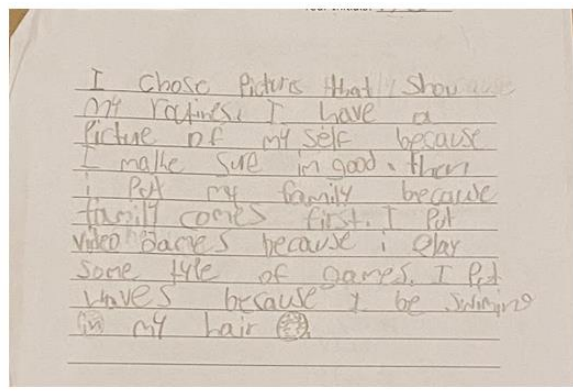 I chose Pictures that show
my routines. I have a
Picture of my self because
I make sure im good. then
i Put my family because
family comes first. I Put
video games because i Play
some type of games. I Put
waves because I be swiming
in my hair